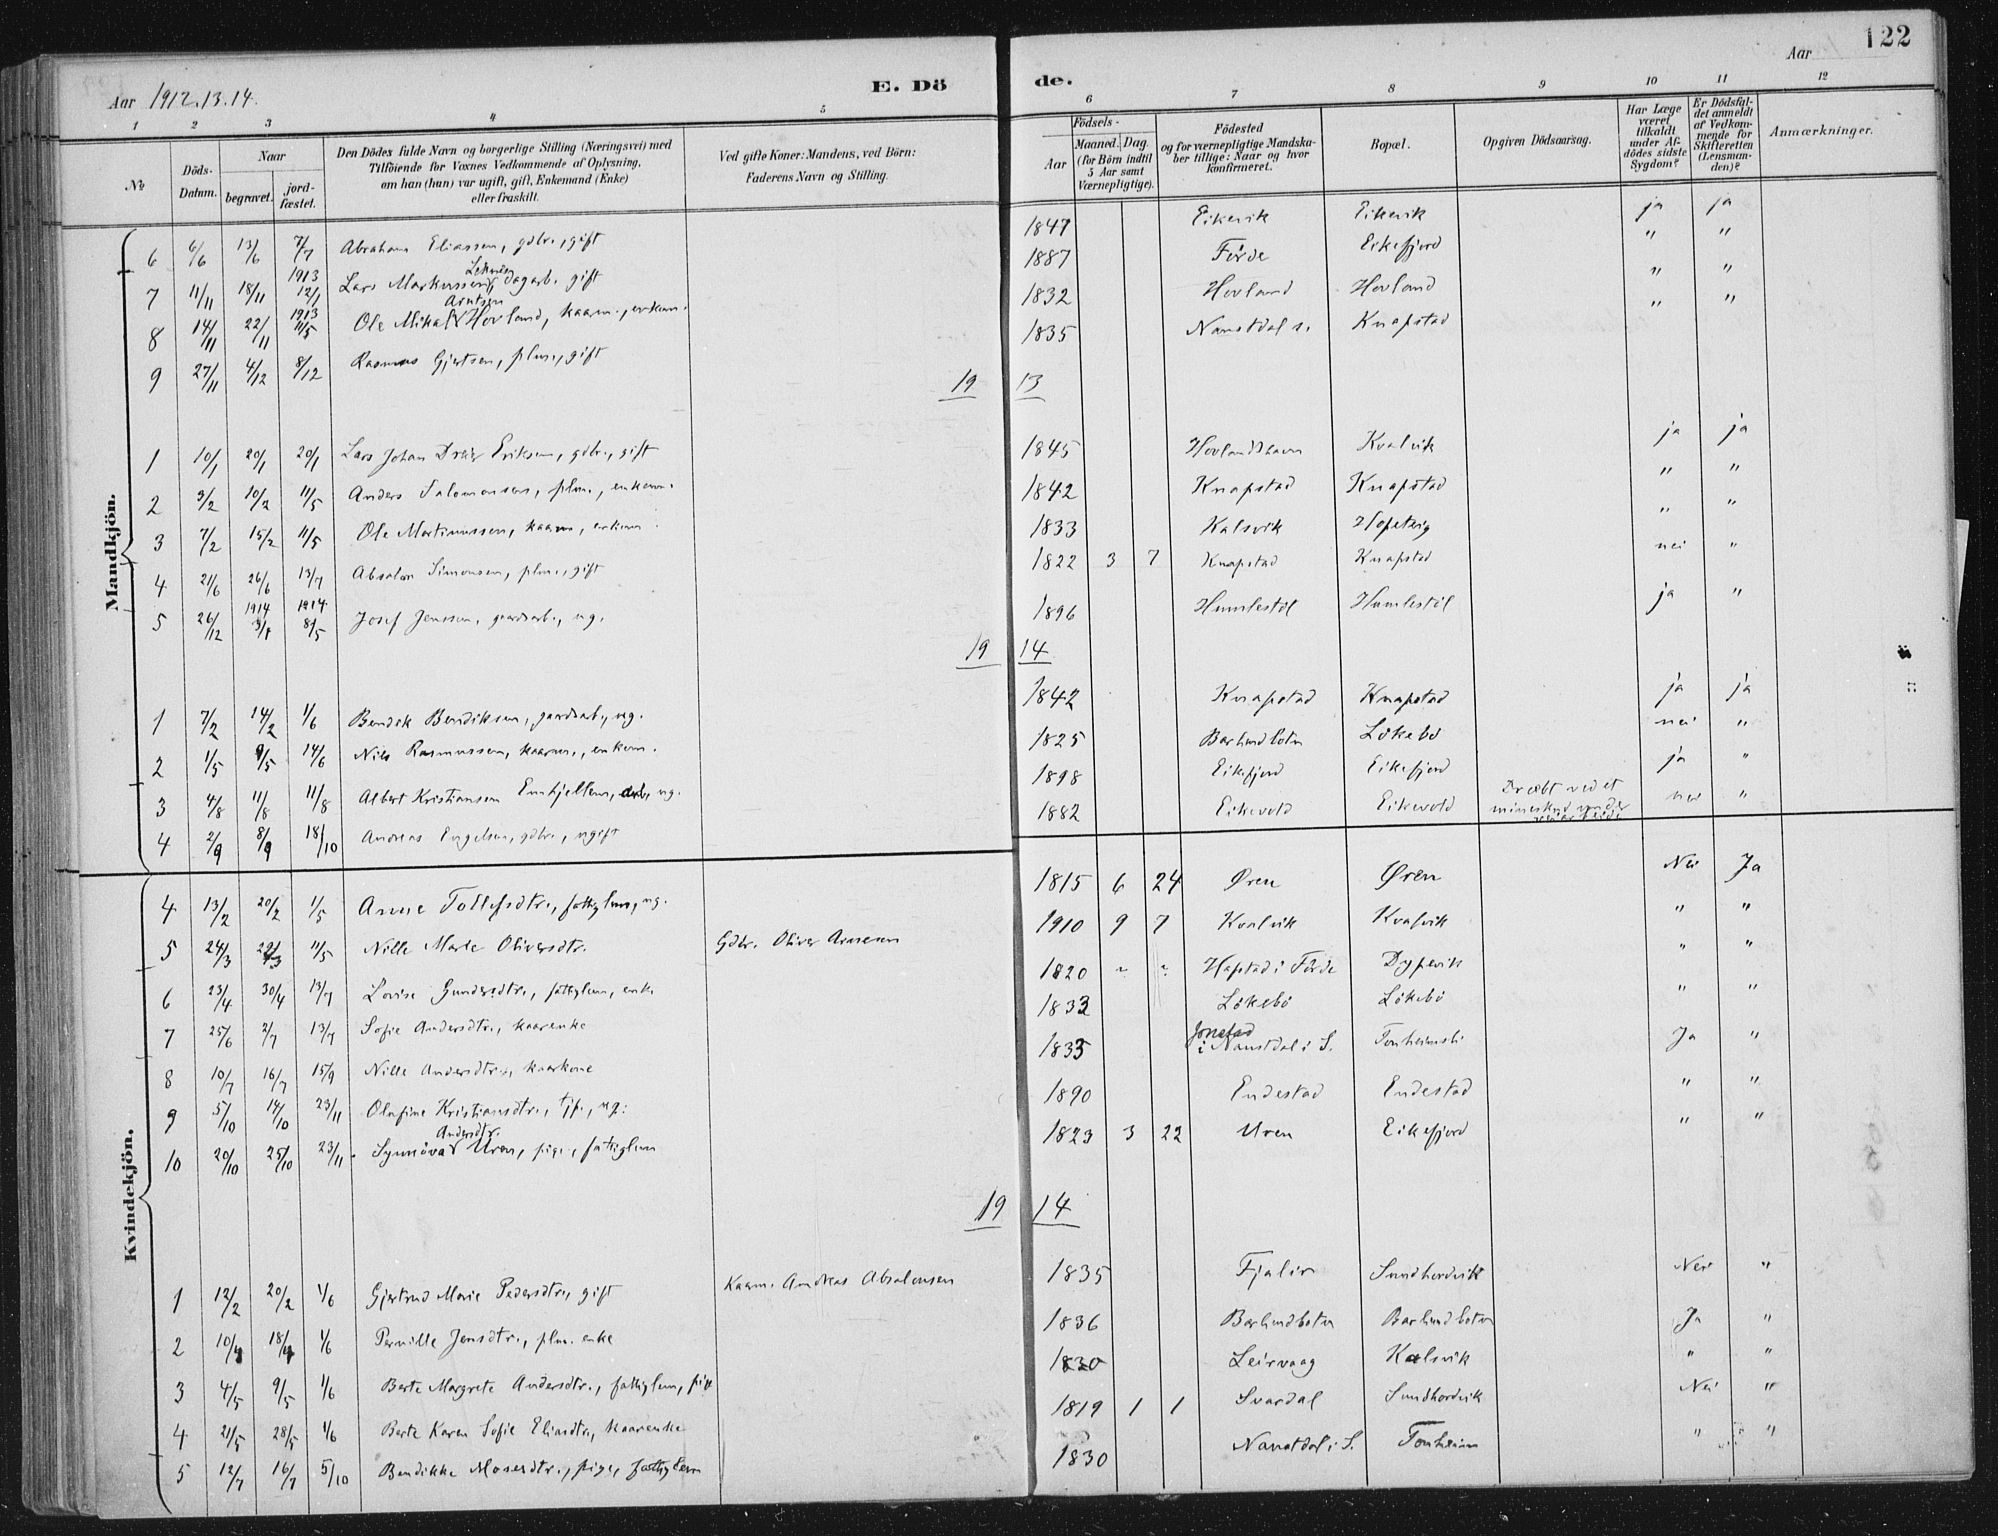 Aar 1912.13.14.
E. Dö
de.
Aar
122
1 2 3 4 5 6 7 8 9 10 11 12
№
Döds-Datum.
Naar
begravet.
jord-fæstet.
Den Dödes fulde Navn og borgerlige Stilling (Næringsvei) med
Tilföiende for Voxnes Vedkommende af Oplysning,
om han (hun) var ugift, gift, Enkemand (Enke)
eller fraskilt.
Ved gifte Koner: Mandens, ved Börn:
Faderens Navn og Stilling.
Födsels-
Aar
Maaned. Dag.
(for Börn indtil
5 Aar samt
Værnepligtige).
Födested
og for værnepligtige Mandska-
ber tillige: Naar og hvor
konfirmeret.
Bopæl.
Opgiven Dödsaarsag.
Har Læge
været
tilkaldt
under Af-
dödes sidste
Sygdom?
Er Dödsfal-
det anmeldt
af Vedkom-
mende for
Skifteretten
(Lensman-
den)?
Anmærkninger.
Mandkjön.
6 6/6 13/6 7/7 Abraham Eliassen, gdbr., gift 1847 Eikevik Eikevik ja ja
7 11/11 18/11 1913 12/1 Lars Markussen Leknes, dagarb. gift 1887 Førde Eikefjord " "
8 14/11 22/11 1913 11/5 Ole Mikal Arntsen Hovland, kaarm., enkem. 1832 Hovland Hovland " "
9 27/11 4/12 8/12 Rasmus Gjertsen, plm., gift 1835 Naustdal s. Knapstad " "
19 13
1 10/1 20/1 20/1 Lars Johan Dreier Eriksen, gdbr., gift 1845 Hovlandshavn Kvalvik ja ja
2 3/2 10/2 11/5 Anders Salomonsen, plm., enkem. 1842 Knapstad Knapstad " "
3 7/2 15/2 11/5 Ole Martinussen, kaarm., enkem. 1833 Kalsvik " "
4 21/6 26/6 13/7 Absalon Simonsen, plm., gift 1822 3 7 Knapstad Knapstad nei "
5 26/12 1914 3/1 1914 8/5 Josef Jenssen, gaardsarb., ug. 1896 Humlestöl Humlestöl ja "
19 14
1 7/2 14/2 1/6 Bendik Bendiksen, gaardsarb., ug. 1842 Knapstad Knapstad ja ja
2 1/5 9/5 14/6 Nils Rasmussen, kaarm., enkem. 1825 Barlindbotn Løkebö nei "
3 4/8 11/8 11/8 Albert Kristiansen Emhjellen, arb., ug. 1898 Eikefjord Eikefjord ja "
4 2/9 8/9 18/10 Andreas Engelsen, gdbr., ugift 1882 Eikevold Eikevold Dræbt ved et mineskud under nei "
Kvindekjön.
4 13/2 20/2 1/5 Anne Tollefsdtr., fattiglem, ug. 1815 6 24 Øren Øren Nei Ja
5 24/3 29/3 11/5 Nille Marte Oliversdtr. Gdbr. Oliver Arnesen 1910 9 7 Kvalvik Kvalvik " "
6 23/4 30/4 13/7 Lovise Gundersdtr., fattiglem, enke 1820 " " Hapstad i Førde Dypevik " "
7 25/6 2/7 13/7 Sofie Andersdtr., kaarenke 1833 Løkebö Løkebö " "
8 10/7 16/7 15/9 Nille Andersdtr., kaarkone 1835 Jonstad i Naustdal i S. Tonheimsli Ja "
9 5/10 14/10 23/11 Olufine Kristiansdtr., tjp., ug. 1890 Endestad Endestad " "
10 20/10 25/10 23/11 Synnöva Andersdtr. Uren, pige, fattiglem 1823 3 22 Uren Eikefjord " "
19 14
1 12/2 20/2 1/6 Gjertrud Marie Pedersdtr., gift Kaarm. Andreas Absalonsen 1835 Fjaler Sundhordvik Nei "
2 10/4 18/4 1/6 Pernille Jensdtr., plm. enke 1836 Barlindbotn Barlindbotn Ja "
3 4/5 9/5 1/6 Berte Margrete Andersdtr., fattiglem, pige 1830 Leirvaag Kalsvik " "
4 21/5 28/5 1/6 Berte Karen Sofie Eliasdtr., kaarenke 1819 1 1 Svardal Sundhordvik Nei "
5 12/7 16/7 5/10 Bendikke Mosesdtr., pige, fattiglem 1830 Naustdal i S. Tonheim " "